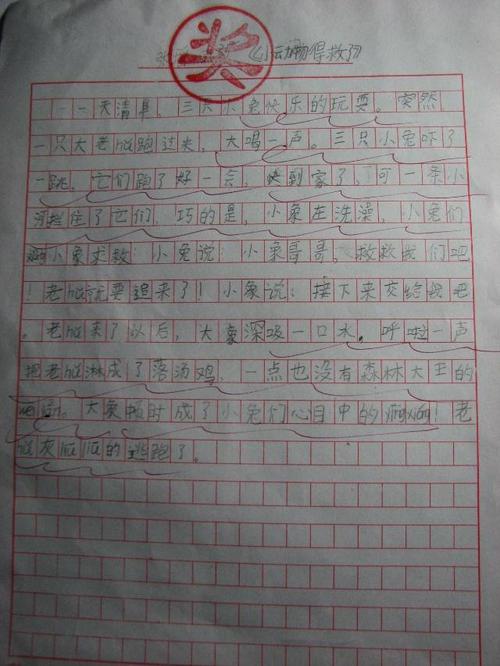 奖
《小动物得救了》
一一天清早，三只小兔快乐的玩耍。突然
一只大老虎跑过来，大唱一声。三只小兔吓了
一跳，它们跑了好一会，快到家了，可一条小
河拦住了它们，巧的是，小象在洗澡，小兔们
小象求救：小兔说：小象哥哥，救救我们吧
！老虎就要追来了！小象说：接下来交给我吧
。老虎来了以后，大象深吸一口水。呼啦一声
把老虎淋成了落汤鸡，一点也没有森林大王的
。大象顿时成了小兔们心目中的！老
虎灰溜溜的逃跑了。